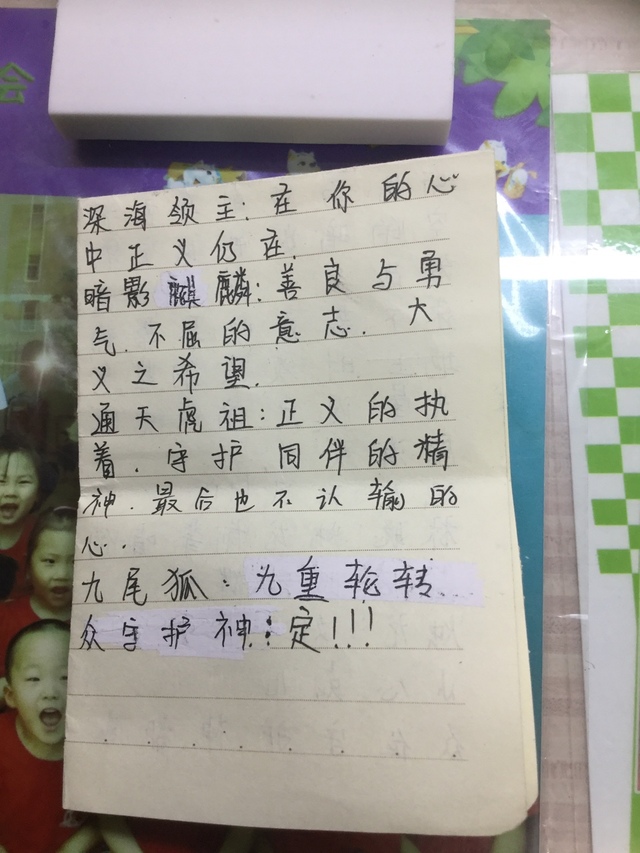 会
深海领主:在你的心
中正义仍在.
暗影麒麟:善良与勇
气.不屈的意志.大
义之希望.
通天虎祖:正义的执
着.守护同伴的精
神.最后也不认输的
心.
九尾狐:九重轮转...
众守护神:定!!!